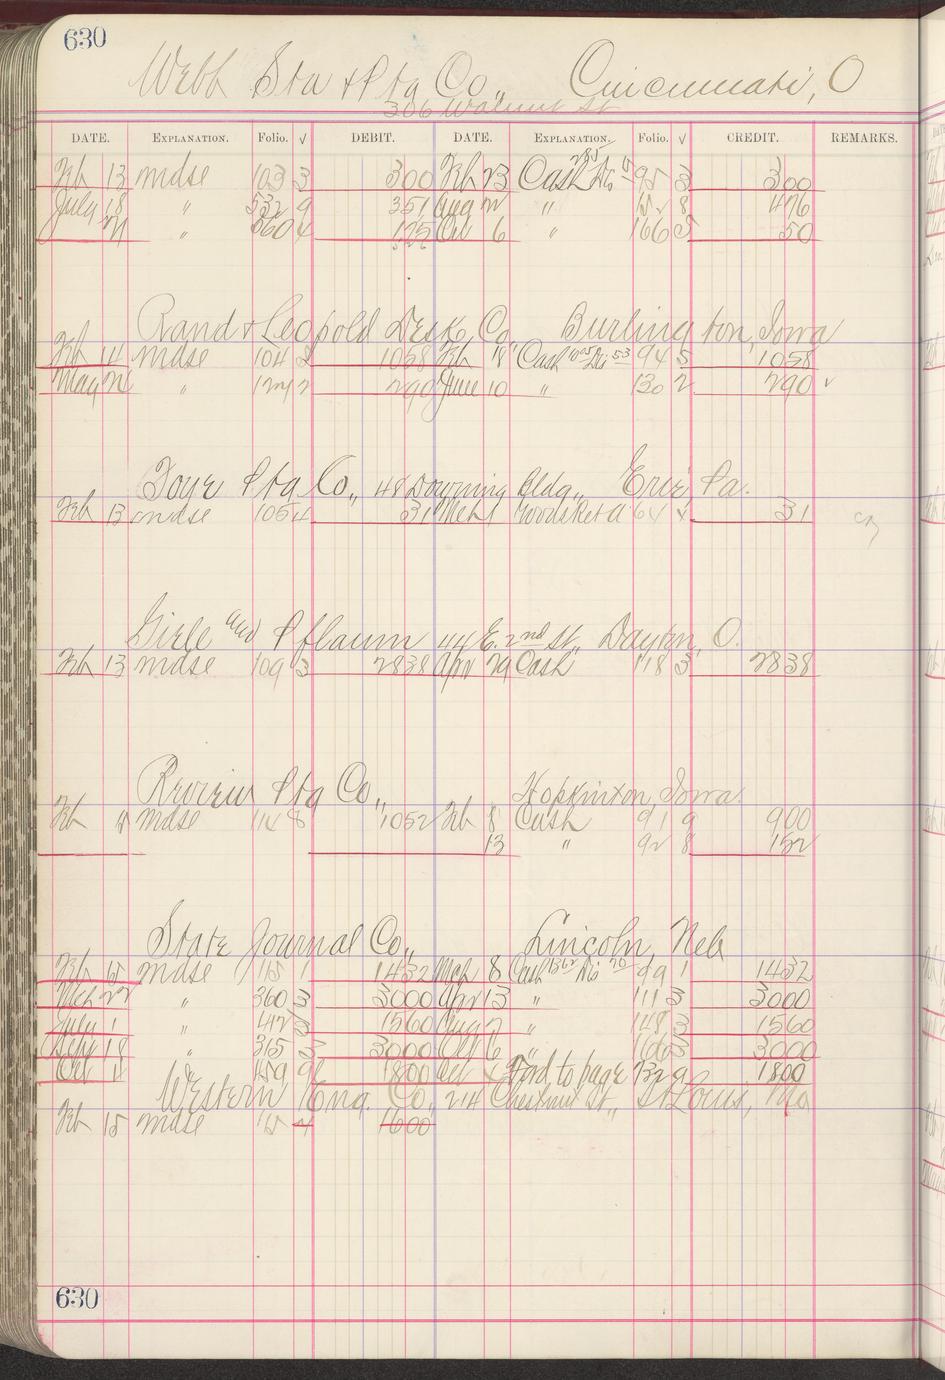 630
Webb Sta & Ptg Co., Cincinnati, O
306 Walnut St
DATE. EXPLANATION. Folio. √ DEBIT. DATE. EXPLANATION. Folio. √ CREDIT. REMARKS.
Feb 13 mdse 103 3 300 Feb 23 Cash 285 Dis 15 95 3 300
July 18 " 532 9 351 Aug " 8 476
21 " 560 4 125 Oct 6 " 166 5 50
526
Rand & Leopold Desk Co., Burlington, Iowa
Feb 14 mdse 104 2 1058 Feb 18 Cash 1005 Dis 53 94 5 1058
May " 2 290 June 10 " 130 2 290 √
Foye Ptg Co., 48 Downing Bldg., Erie, Pa.
Feb 13 mdse 105 4 31 Mch 1 Goods Ret'd 64 31
Giele and Pflaum 44 E. 2nd St., Dayton, O.
Feb 13 mdse 109 3 2838 Apr 29 Cash 118 3 2838
Review Ptg Co., Hopkinton, Iowa.
Feb mdse 114 8 1052 Feb 8 Cash 91 9 900
13 " 92 8 152
State Journal Co., Lincoln, Neb
Feb 15 mdse 115 1 1432 Mch 8 Cash 1362 Dis 70 99 1 1432
Mch 22 " 360 3 3000 Apr 13 " 111 3 3000
July 1 " 1560 Aug 2 " 148 3 1560
Sept 18 " 315 3000 Oct 6 " 166 3 3000
Oct 4 159 1800 Oct Ford to page 732 9 1800
Western Eng. Co., 214 Chestnut St., St Louis, Mo
Feb 15 mdse 115 4 1600
630